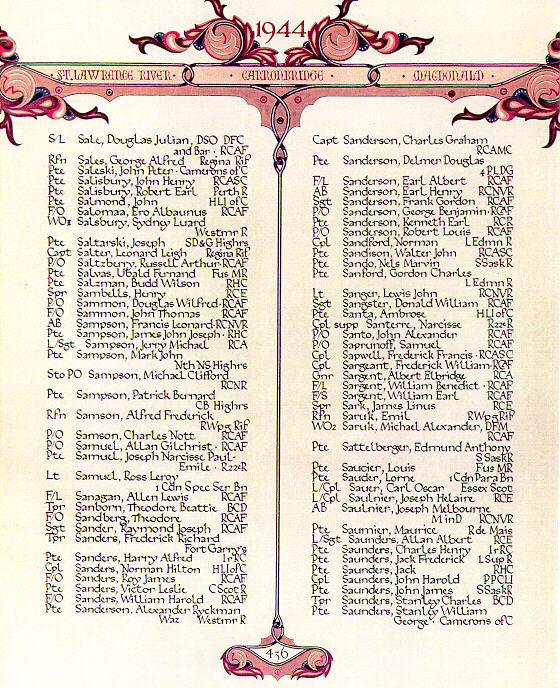 1944
ST. LAWRENCE RIVER · CARRONBRIDGE · MACDONALD
S/L Sale, Douglas Julian, DSO DFC
and Bar · RCAF
Rfn Sales, George Alfred Regina Rif
Pte Saleski, John Peter · Camerons of C
Pte Salisbury, John Henry RCASC
Pte Salisbury, Robert Earl Perth R
Pte Salmond, John HLI of C
F/O Salomaa, Ero Albaunus RCAF
WO2 Salsbury, Sydney Luard
Westmr R
Pte Saltarski, Joseph SD&G Highrs
Capt Salter, Leonard Leigh Regina Rif
P/O Saltzberry, Russell Arthur · RCAF
Pte Salvas, Ubald Fernand Fus MR
Pte Salzman, Budd Wilson RHC
Spr Sambells, Henry RCE
P/O Sammon, Douglas Wilfred · RCAF
F/O Sammon, John Thomas RCAF
AB Sampson, Francis Leonard · RCNVR
Pte Sampson, James John Joseph · RHC
L/Sgt Sampson, Jerry Michael RCA
Pte Sampson, Mark John
Nth NS Highrs
Sto PO Sampson, Michael Clifford
RCNR
Pte Sampson, Patrick Bernard
CB Highrs
Rfn Samson, Alfred Frederick
RWpg Rif
P/O Samson, Charles Nott RCAF
P/O Samuel, Allan Gilchrist · RCAF
Pte Samuel, Joseph Narcisse Paul-
Emile · R22eR
Lt Samuel, Ross Leroy
1 Cdn Spec Ser Bn
F/L Sanagan, Allen Lewis RCAF
Tpr Sanborn, Theodore Beattie BCD
F/O Sandberg, Theodore RCAF
Sgt Sander, Raymond Joseph RCAF
Tpr Sanders, Frederick Richard
Fort Garry's
Pte Sanders, Harry Alfred Ir RC
Cpl Sanders, Norman Hilton HLI of C
F/O Sanders, Roy James RCAF
Pte Sanders, Victor Leslie C Scot R
F/O Sanders, William Harold RCAF
Pte Sanderson, Alexander Ryckman
Waz Westmr R
Capt Sanderson, Charles Graham
RCAMC
Pte Sanderson, Delmer Douglas
4 PLDG
F/L Sanderson, Earl Albert RCAF
AB Sanderson, Earl Henry RCNVR
Sgt Sanderson, Frank Gordon RCAF
P/O Sanderson, George Benjamin · RCAF
Pte Sanderson, Kenneth Earl RCR
P/O Sanderson, Robert Louis RCAF
Cpl Sandford, Norman L Edmn R
Pte Sandison, Walter John RCASC
Pte Sando, Nels Marvin S Sask R
Pte Sanford, Gordon Charles
L Edmn R
Lt Sanger, Lewis John RCNVR
Sgt Sangster, Donald William RCAF
Pte Santa, Ambrose HLI of C
Cpl supp Santerre, Narcisse R22eR
P/O Santo, John Alexander RCAF
P/O Saprunoff, Samuel RCAF
Cpl Sapwell, Frederick Francis · RCASC
Cpl Sargeant, Frederick William · RCAF
Gnr Sargent, Albert Elbridge RCA
F/L Sargent, William Benedict · RCAF
F/S Sargent, William Earl RCAF
Spr Sark, James Linus RCE
Rfn Saruk, Emil RWpg Rif
WO2 Saruk, Michael Alexander, DFM
RCAF
Pte Sattelberger, Edmund Anthony
S Sask R
Pte Saucier, Louis Fus MR
Pte Sauder, Lorne 1 Cdn Para Bn
L/Cpl Sauer, Carl Oscar Essex Scot
L/Cpl Saulnier, Joseph Helaire RCE
AB Saulnier, Joseph Melbourne
M in D RCNVR
Pte Saumier, Maurice R de Mais
L/Sgt Saunders, Allan Albert RCE
Pte Saunders, Charles Henry Ir RC
Pte Saunders, Jack Frederick L Sup R
Pte Saunders, Jack RHC
Cpl Saunders, John Harold PPCLI
Pte Saunders, John James S Sask R
Tpr Saunders, Stanley Charles BCD
Pte Saunders, Stanley William
George · Camerons of C
436